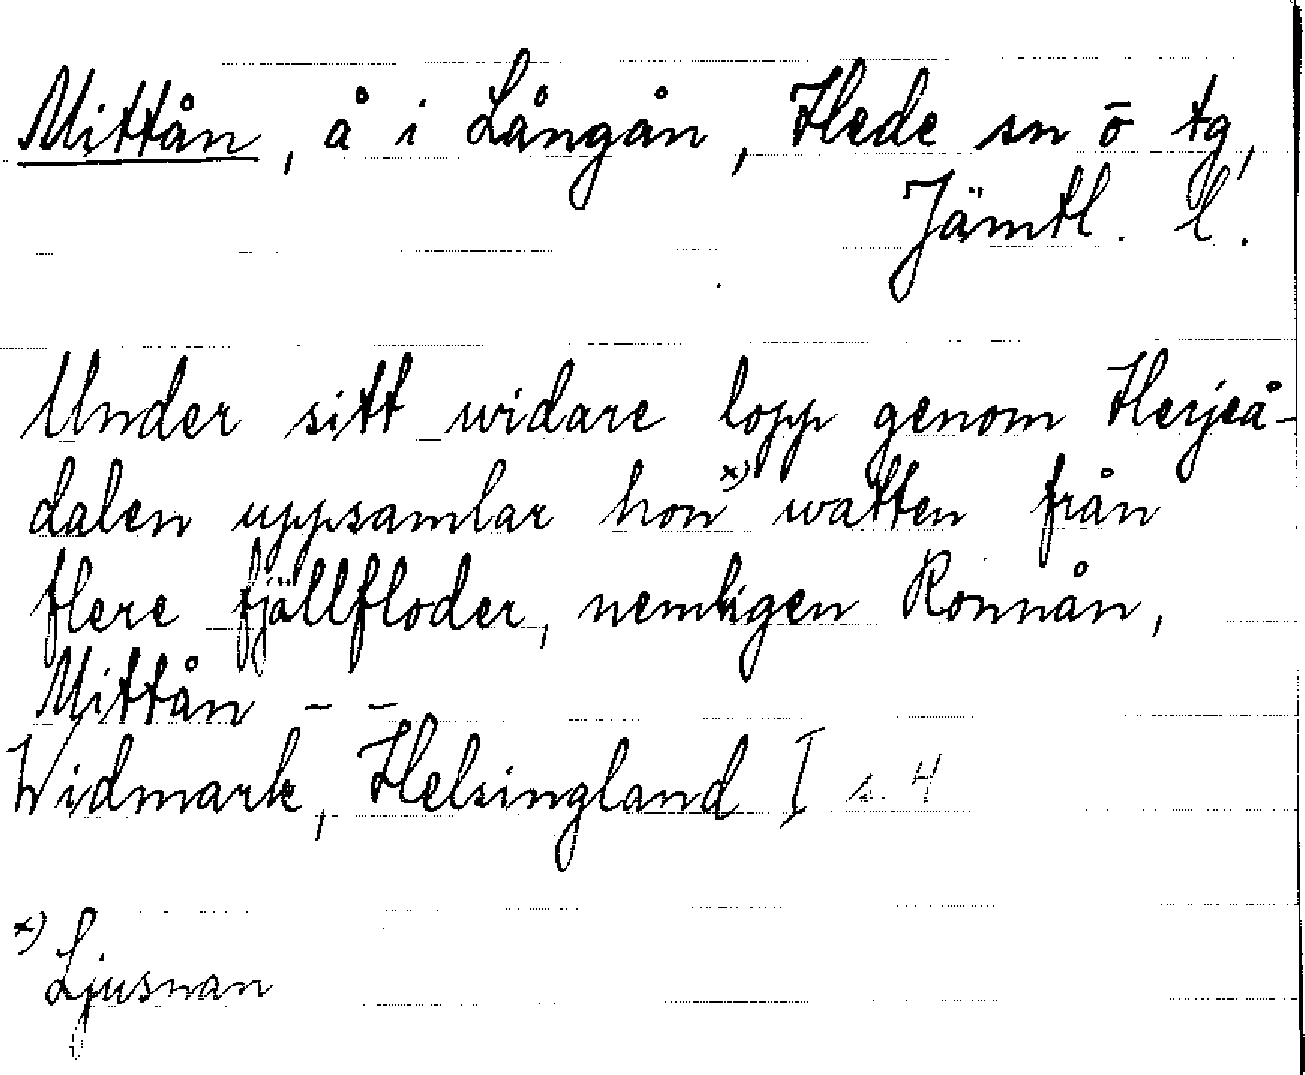 Mittån, å i Långån, Hede sn o tg,
Jämtl. l.
Under sitt widare lopp genom Herjeå-
dalen uppsamlar hon x) watten från
flere fjällfloder, nemligen Ronnån,
Mittån - -
Widmark, Helsingland I s. 4
x) Ljusnan